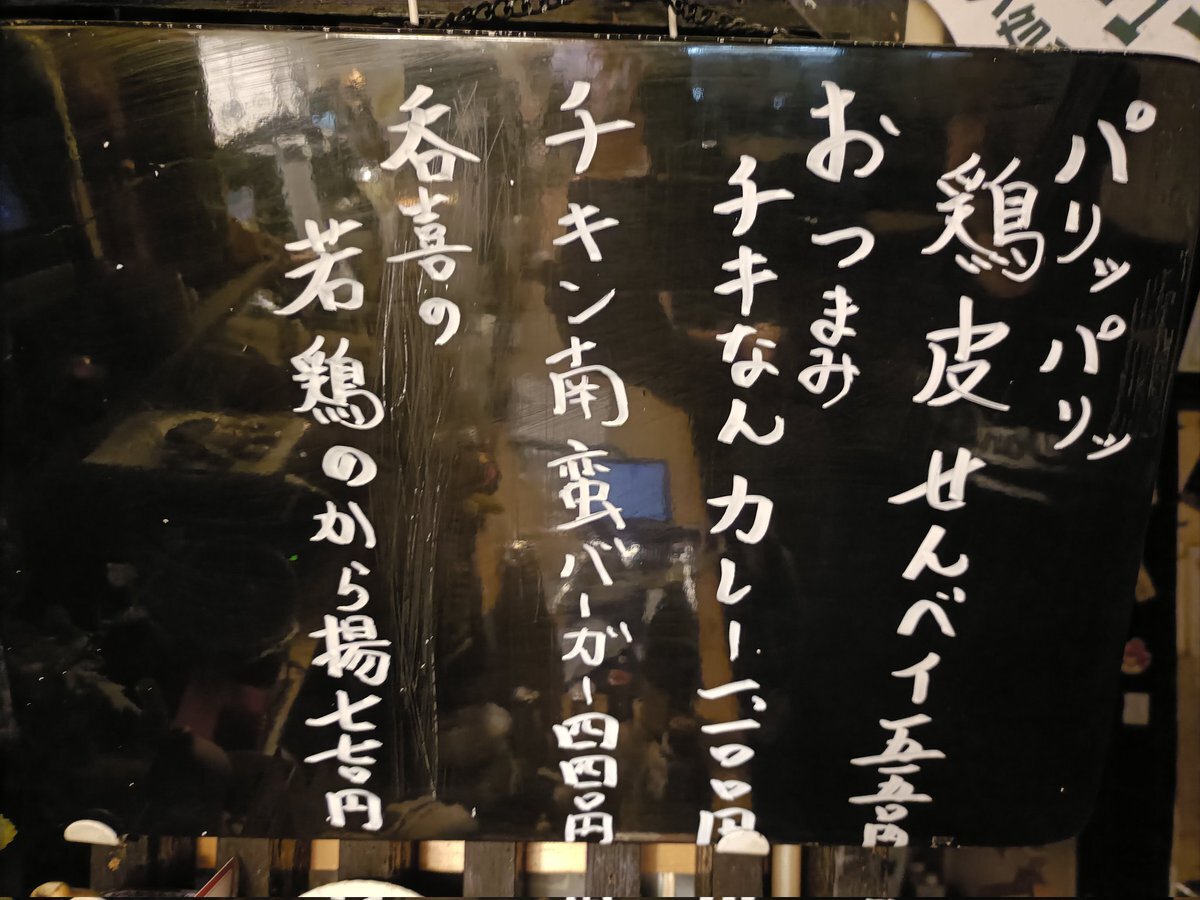 パリッパリッ
鶏皮せんベイ五五〇円
おつまみ
チキなんカレー一、一〇〇円
チキン南蛮バーガー四四〇円
呑喜の
若鶏のから揚七七〇円